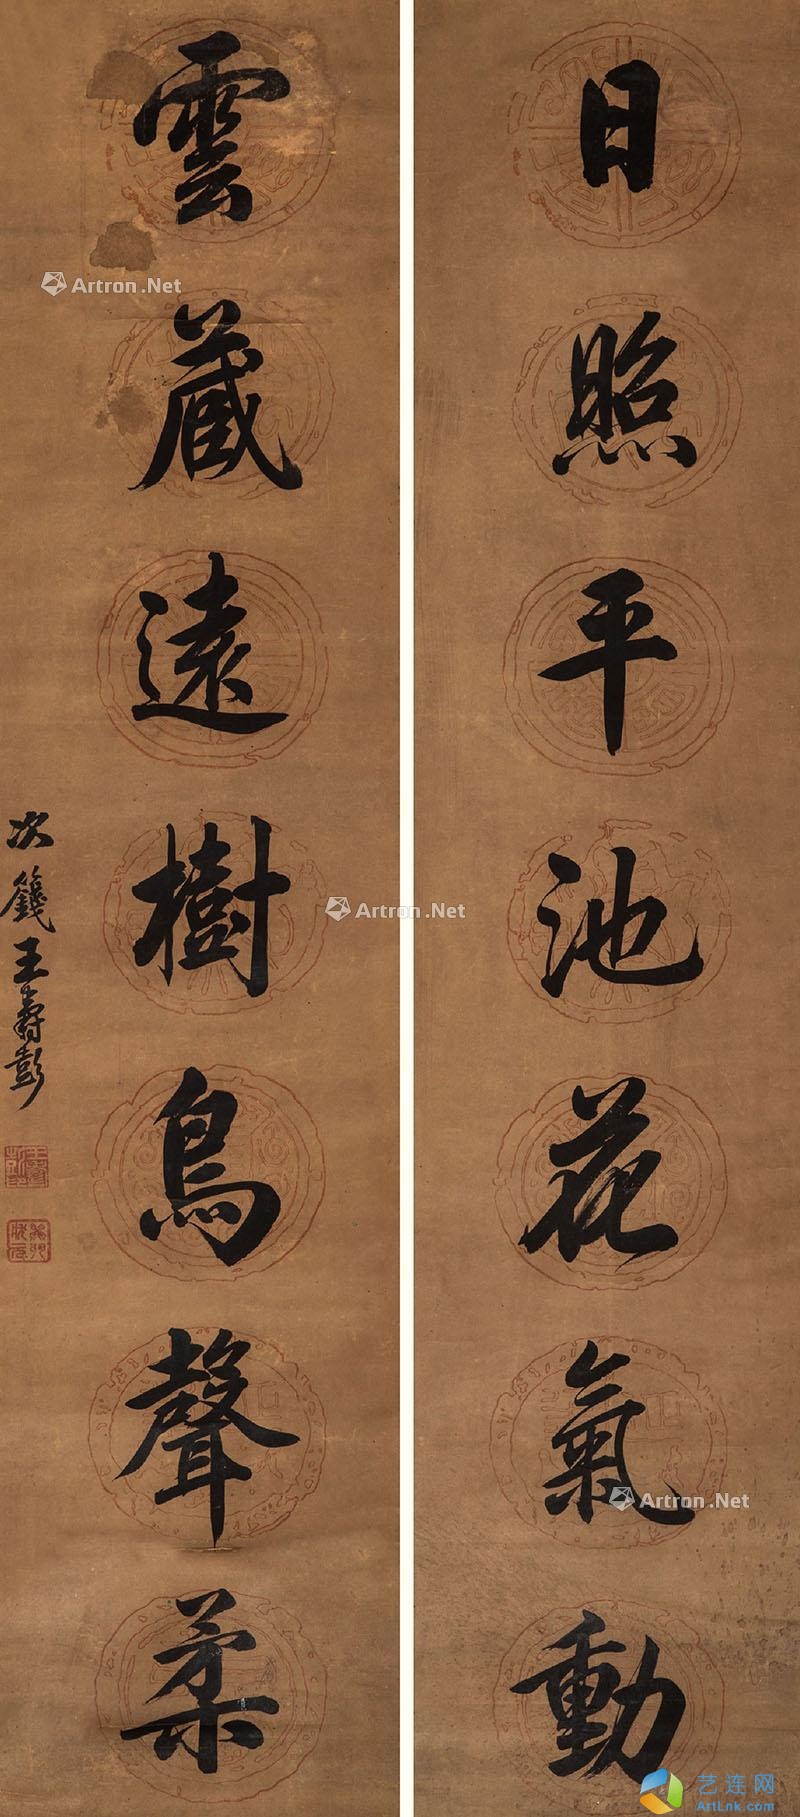 日照平池花氣動
雲藏遠樹鳥聲柔
次籛王壽彭
Artron.Net
Artron.Net
Artron.Net
艺连网
ArtLnk.com